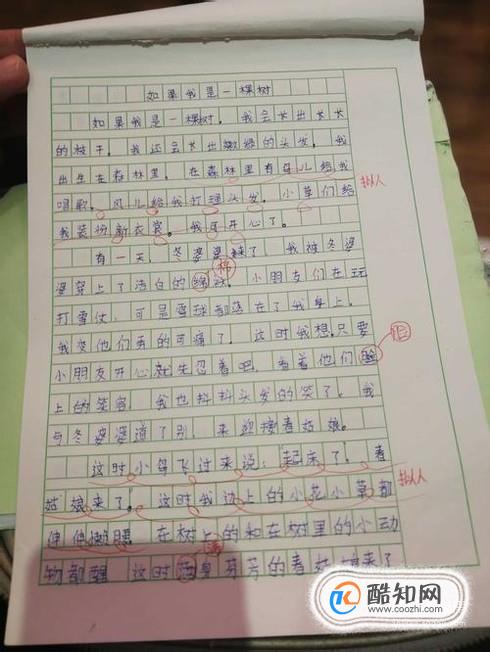 如果我是一棵树
如果我是一棵树，我会长出长长
的枝干，我还会长出嫩绿的头发。我
出生在森林里。在森林里有鸟儿给我
唱歌，风儿给我打理头发，小草们给 拟人
我装扮新衣裳。我可开心了。
有一天，冬婆婆来了，我被冬婆
棉
婆穿上了洁白的绵袄。小朋友们在玩
打雪仗，可是雪球都落在了我身上。
我被他们弄的可痛了。这时我想，只要
小朋友开心就先忍着吧。看着他们脸 脸
上的笑容，我也抖抖头发的笑了。我
与冬婆婆道了别，来迎接春姑娘。
这时小鸟飞过来说：起床了，春
姑娘来了。这时我边上的小花小草都 拟人
伸伸懒腰，在树上的和在树里的小动
满
物都醒 这时 身芬芳的春姑娘来了
酷知网
www.coozhi.com